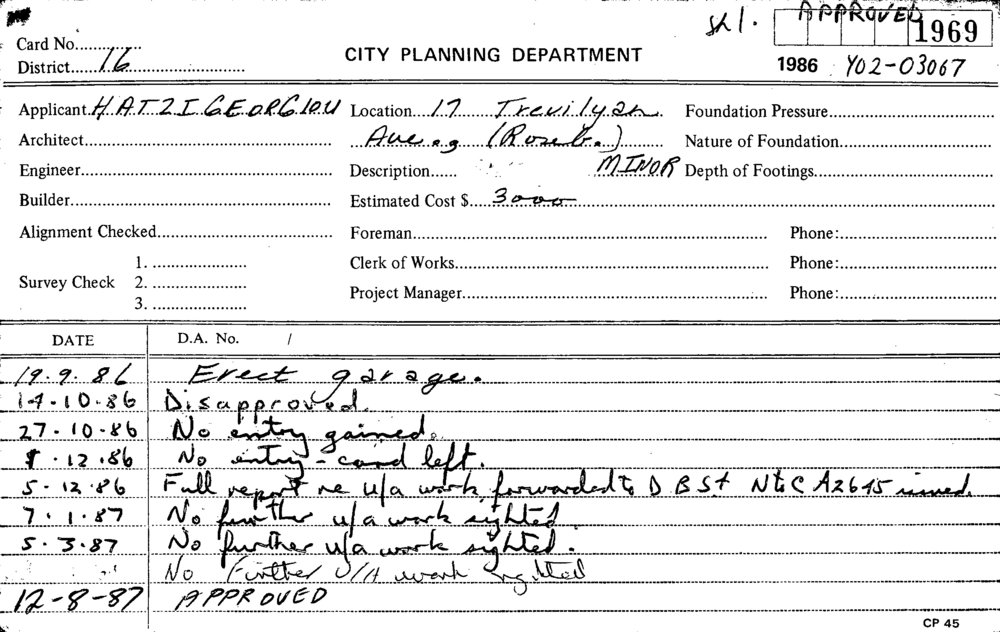 sh 1. APPROVED
1969
Card No.
District 16
CITY PLANNING DEPARTMENT
1986 Y02-03067
Applicant HATZIGEORGIOU Location 17 Trevilyan Foundation Pressure
Architect Ave. (Roseb.) Nature of Foundation
Engineer Description MINOR Depth of Footings
Builder Estimated Cost $ 3000
Alignment Checked Foreman Phone:
1. Clerk of Works Phone:
Survey Check 2.
Project Manager Phone:
3.
DATE D.A. No. /
19.9.86 Erect garage.
14-10-86 Disapproved.
27-10-86 No entry gained.
12.86 No entry - card left.
5-12-86 Full report re u/a work forwarded to D B S + Ntc A2645 issued.
7.1.87 No further u/a work sighted
5.3.87 No further u/a work sighted.
No Further U/A work sighted
12-8-87 APPROVED
CP 45